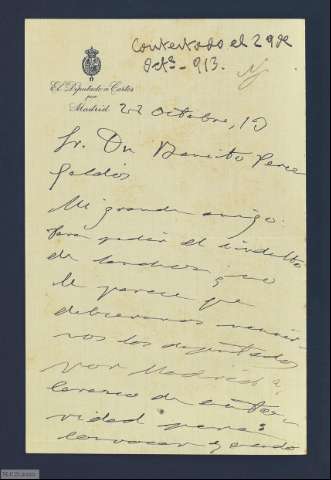 Contestado el 29 de
Octe - 913.
El Diputado a Cortes
por
Madrid 22 octubre, 13
Sr. Dn Benito Perez
Galdós
Mi grande amigo.
Para pedir el indulto
de Sanchez ¿no
le parece que
debieramos reunir
nos los diputados
por Madrid?
Carezco de auto-
ridad para
convocar y cuando